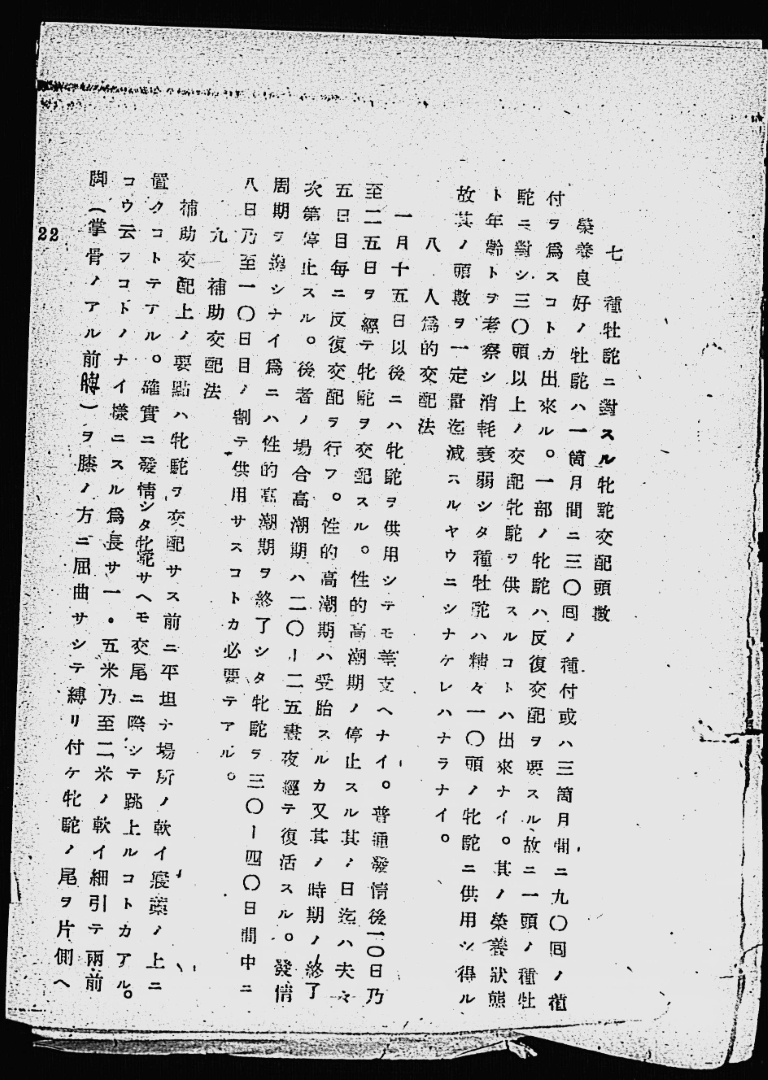 七 種牡駝ニ對スル牝駝交配頭數
榮養良好ノ牡駝ハ一箇月間ニ三〇囘ノ種付或ハ三箇月間ニ九〇囘ノ種
付ヲ爲スコトカ出來ル。一部ノ牝駝ハ反復交配ヲ要スル、故ニ一頭ノ種牡
駝ニ對シ三〇頭以上ノ交配牝駝ヲ供スルコトハ出來ナイ。其ノ榮養狀態
ト年齡トヲ考察シ消耗衰弱シタ種牡駝ハ精々一〇頭ノ牝駝ニ供用シ得ル
故其ノ頭數ヲ一定量迄減スルヤウニシナケレハナラナイ。
八 人爲的交配法
一月十五日以後ニハ牝駝ヲ供用シテモ差支ヘナイ。普通發情後一〇日乃
至二五日ヲ經テ牝駝ヲ交配スル。性的高潮期ノ停止スル其ノ日迄ハ夫々
五日目每ニ反復交配ヲ行フ。性的高潮期ハ受胎スルカ又其ノ時期ノ終了
次第停止スル。後者ノ場合高潮期ハ二〇ー二五晝夜經テ復活スル。發情
周期ヲ逸シナイ爲ニハ性的高潮期ヲ終了シタ牝駝ヲ三〇ー四〇日間中ニ
八日乃至一〇日目ノ割テ供用サスコトカ必要テアル。
九 補助交配法
補助交配上ノ要點ハ牝駝ヲ交配サス前ニ平坦ナ場所ノ軟イ寢藁ノ上ニ
置クコトテアル。確實ニ發情シタ牝駝サヘモ交尾ニ際シテ跳上ルコトカアル。
コウ云フコトノナイ樣ニスル爲長サ一・五米乃至二米ノ軟イ細引テ兩前
脚(掌骨ノアル前膊)ヲ膝ノ方ニ屈曲サシテ縛リ付ケ牝駝ノ尾ヲ片側ヘ
22